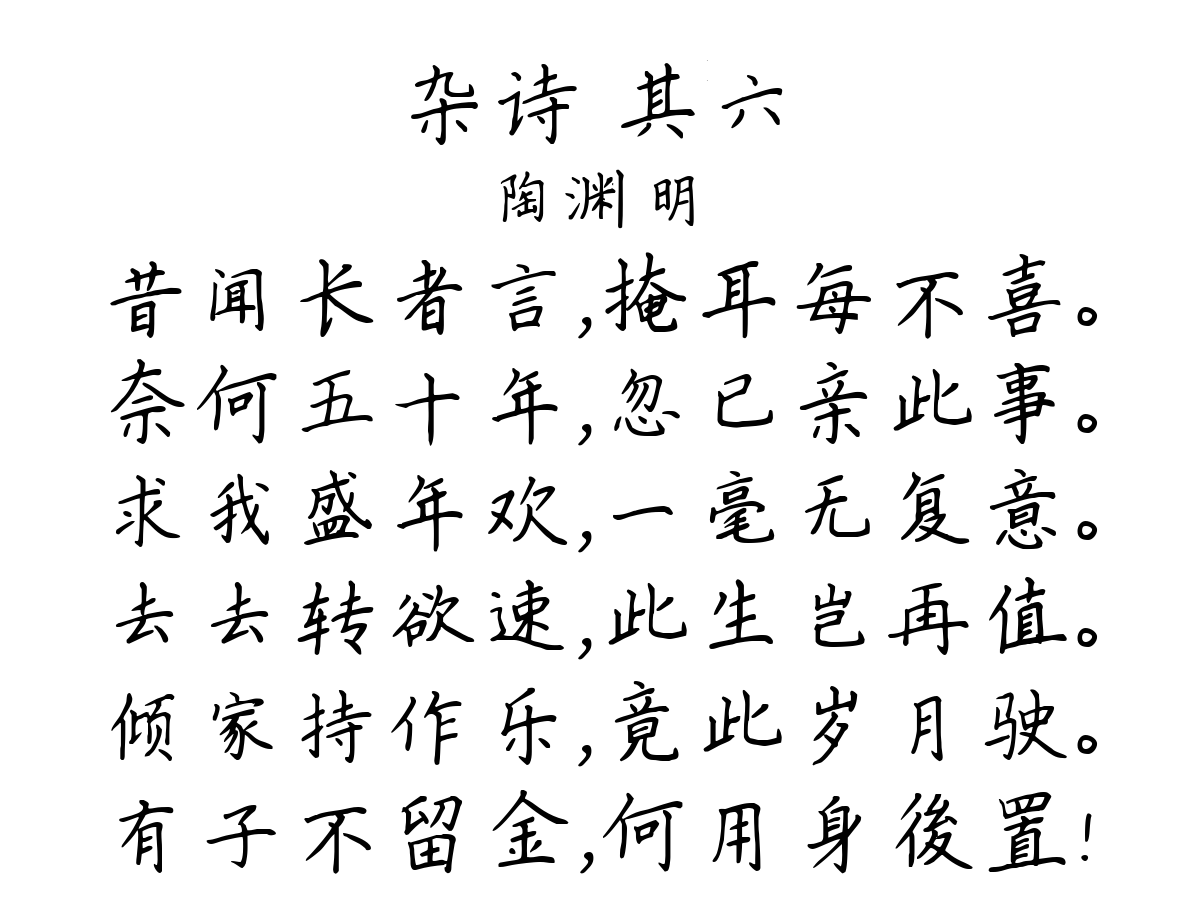 杂诗 其六
陶渊明
昔闻长者言,掩耳每不喜。
奈何五十年,忽已亲此事。
求我盛年欢,一毫无复意。
去去转欲速,此生岂再值。
倾家持作乐,竟此岁月驶。
有子不留金,何用身後置!